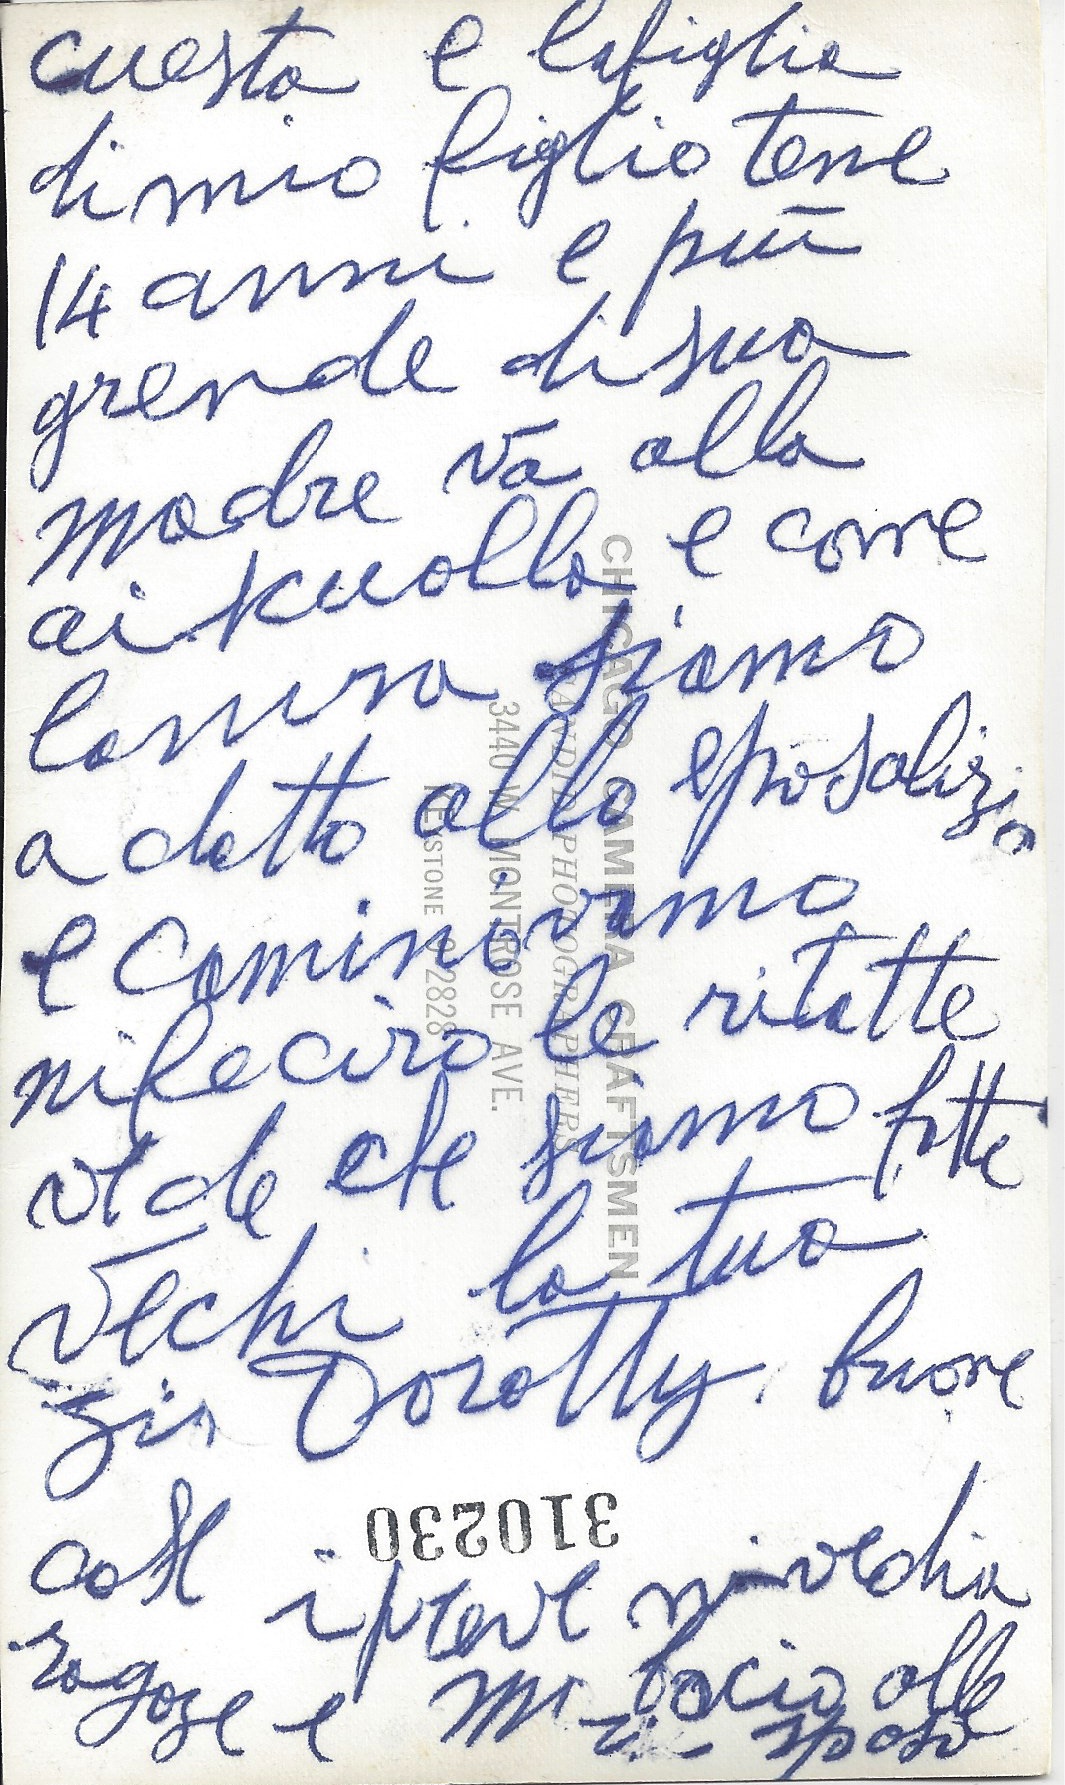 cuesta e lafiglia
di mio figlio tene
14 anni e più
grende di sua
madre và alla
ai skuolla e come
laura siamo
a detto allo sposalizio
e caminavamo
nifeciro le ritatte
vede che siamo fatte
vechi la tua
zia Dorotty. buone
cose i preve ni vedia
ragaze e mi bacio alle
sposo
CHICAGO CAMERA CRAFTSMEN
CANDID PHOTOGRAPHERS
3440 W. MONTROSE AVE.
KEYSTONE 9-2828
310230